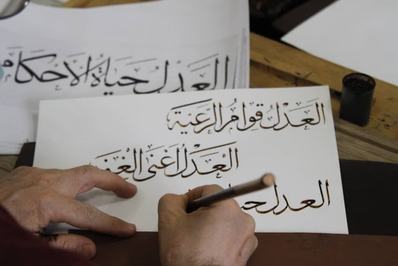 العدل حياة الأحكام
العَدْلُ قوامُ الرَّعيَّة
العَدلُ اغنَى
العدل